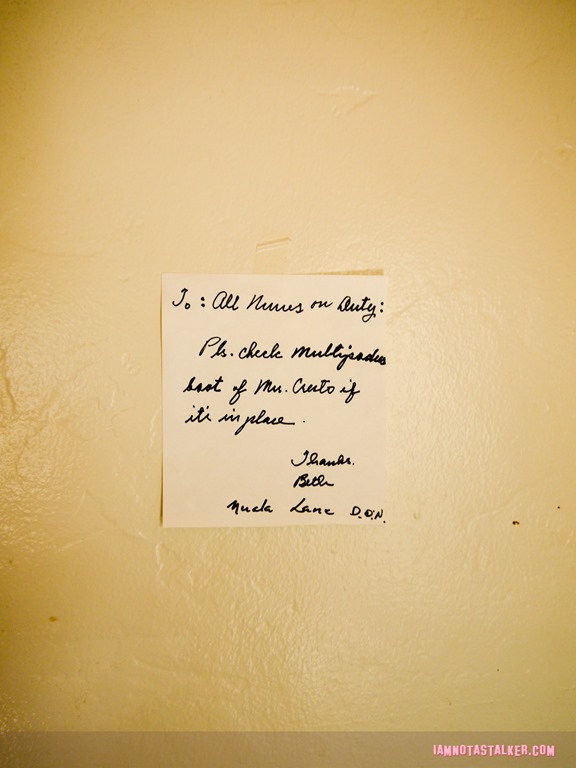 To: All Nurses on Duty:
Pls. check Multipodus
boot of Mr. Cresto if
it's in place.
Thanks.
Beth
Lane D.O.N.
IAMNOTASTALKER.COM